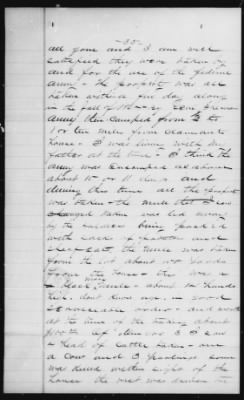 -35-
all gone and I am well
satisfied they were taken by
and for the use of the federal
army - The property was all
taken within a few days along
in the fall of
army then camped from ½ to
1 or two miles from claimants
house - I was living with my
father at the time - I think the
army was encamped as above
about 10 or 11 days and
during this time all the property
was taken - the mule that I saw
taken was led away
by the soldiers being packed
with each of
the mule was taken
from the lot about 100 yards
from the house - this was a
black mule - about 14 hands
high, don't know age, in good
serviceable order - and worth
at the time of the taking about
of I saw
a head of Cattle taken - one
a cow and 3 yearlings some
was killed within sight of the
house the rest was driven to